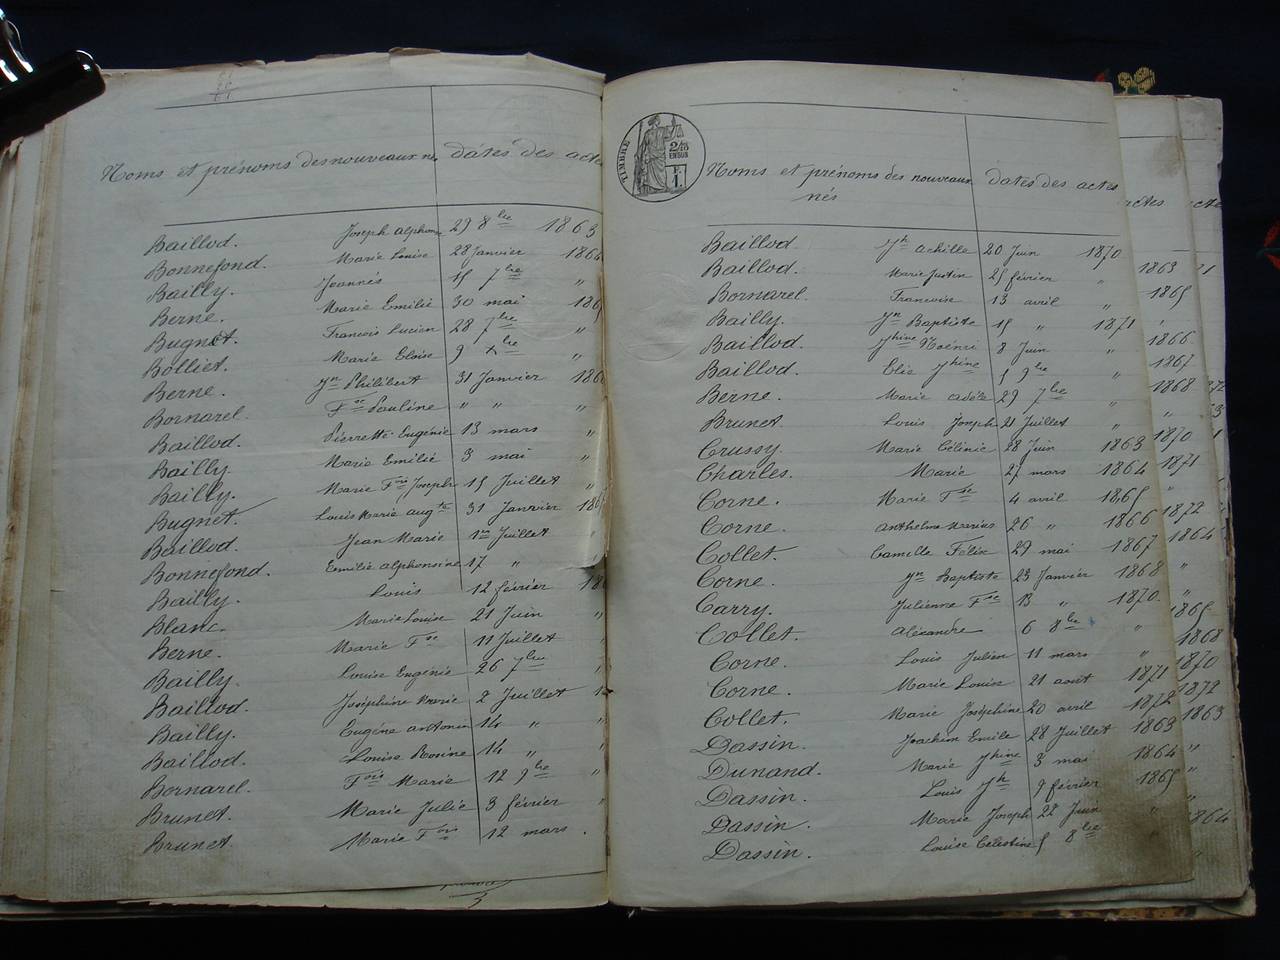 Noms et prénoms des nouveaux n dates des acte
Baillod. Joseph alphon 29 8bre 1863
Bonnefond. Marie Louise 28 Janvier 186
Bailly. Joannès 15 7bre "
Berne. Marie Emilie 30 mai 186
Bugnet. Francois Lucien 28 7bre "
Bolliet. Marie Eloise 9 xbre "
Berne. Jn Philibert 31 Janvier 186
Bornarel. Fse Pauline " " "
Baillod. Pierrette Eugénie 13 mars "
Bailly. Marie Emilie 3 mai "
Bailly. Marie Fois Joseph 15 Juillet "
Bugnet. Louis Marie augte 31 Janvier 186
Baillod. Jean Marie 1er Juillet "
Bonnefond. Emilie alphonsine 17 "
Bailly. Louis 12 février 18
Blanc. Marie Louise 21 Juin "
Berne. Marie Fse 11 Juillet "
Bailly. Louise Eugénie 26 7bre "
Baillod. Joséphine Marie 2 Juillet 1
Bailly. Eugène antonin 14 " "
Baillod. Louise Rosine 14 "
Bornarel. Fois Marie 12 9bre "
Brunet. Marie Julie 3 février "
Brunet. Marie Fois 12 mars .
TIMBRE
2/10
EN SUS
F.
1.
Noms et prénoms des nouveaux dates des actes
nés
Baillod Jh achille 20 Juin 1870
Baillod. Marie Justin 25 février "
Bornarel. Francoise 13 avril "
Bailly. Jn Baptiste 15 " 1871
Baillod. Jhine Noémi 8 Juin "
Baillod. Elie Jhine 5 9bre "
Berne. Marie adèle 29 7bre "
Brunet Louis Joseph 21 Juillet "
Crussy. Marie Célénie 28 Juin 1863
Charles. Marie 27 mars 1864
Corne. Marie Fse 4 avril 1865
Corne. anthelme Marius 26 " 1866
Collet. Camille Félix 29 mai 1867
Corne. Jn Baptiste 23 Janvier 1868
Carry. Julienne Fse 13 " 1870
Collet. alexandre 6 8bre "
Corne. Louis Julien 11 mars "
Corne. Marie Louise 21 août 1871
Collet. Marie Joséphine 20 avril 1872
Dassin. Joachim Emile 28 Juillet 1863
Dunand. Marie Jhine 3 mai 1864
Dassin. Louis Jh 9 février 1865
Dassin. Marie Joseph 22 Juin "
Dassin. Louise Célestine 5 8bre "
actes
1863
1865
"
1866
1867
1868
"
1870
1871
"
1872
1864
"
"
1865
1868
1870
1872
1863
"
"
1864